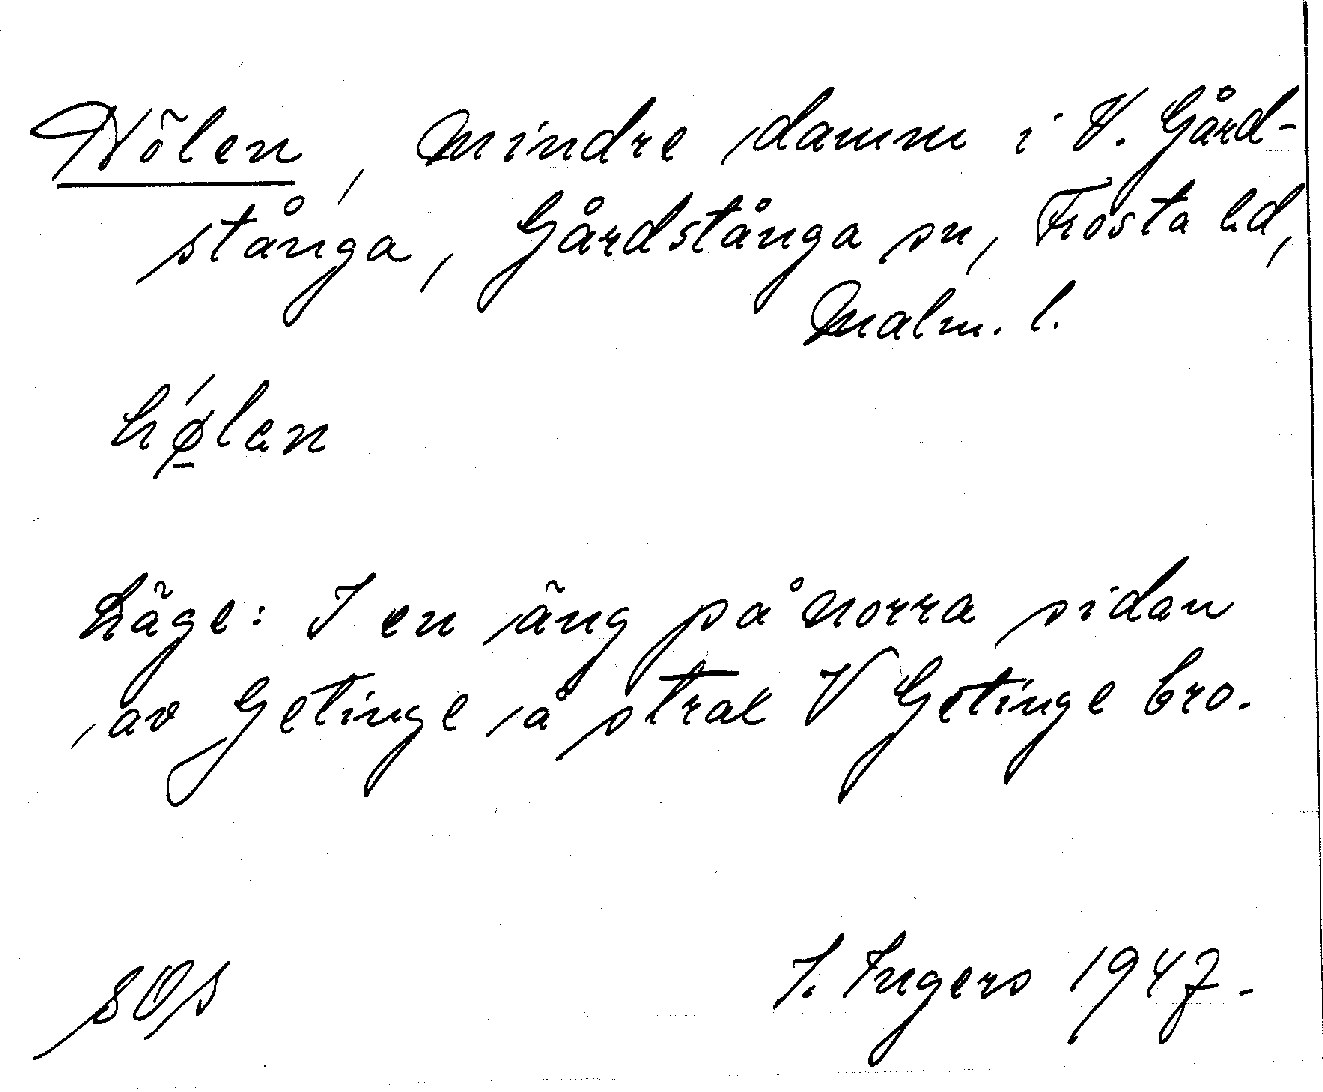 Hölen, mindre damm i V. Gård-
stånga, Gårdstånga sn, Frosta hd,
Malm. l.
hǿ̱lan
Läge: I en äng på norra sidan
av Getinge å strax V Getinge bro.
I. Ingers 1947.